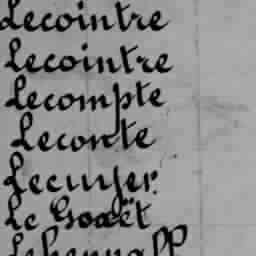 Lecointre
Lecointre
Lecompte
Leconte
Lecuyer
Le Goaët